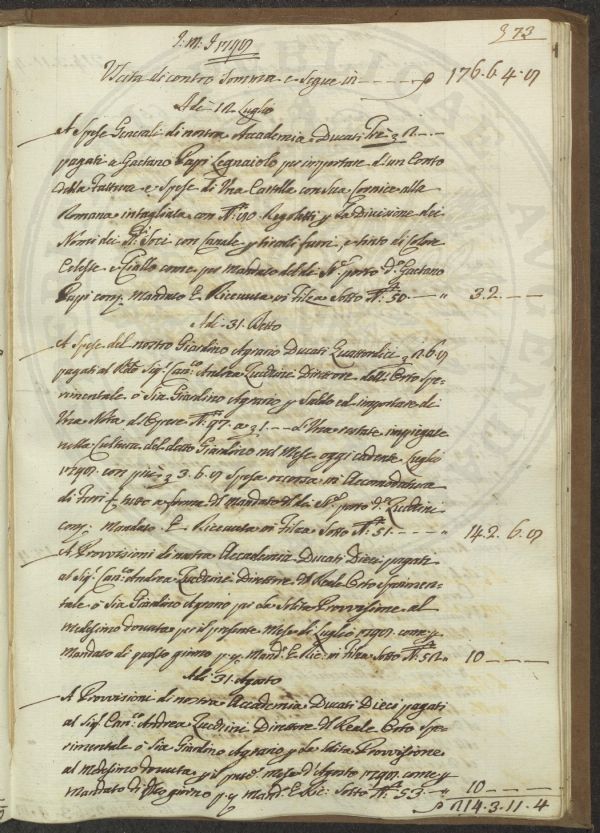 J: M: J 1797 73
Uscita di contro Somma e Segue in - - - - 176.6.4.7
Adi 12 Luglio
A Spese Generali di nostra Accademia Ducati Tre 2 - - -
pagati a Gaetano Papi Legnaiolo per importare d'un Conto
della Fattura e Spese di Una Cartella con Sua Cornice alla
Romana intagliata con N.° 90 Regoletti p La Divisione dei
Nomi dei SS.ri Soci con Canale, e tinto di Colore
Celeste e Giallo come per Mandato del dì N.° porto d.° Gaetano
Papi cons. Mandato E. Ricevuta in Filza Sotto N.° 50. - " 3.2. - -
Adi 31. Detto
A Spese del nostro Giardino Agrario Ducati Quattordici 2.6.7
pagati al Rdo Sig.r Can.co Andrea Zucchini Direttore dell'Orto Spe-
rimentale o Sia Giardino Agrario p Saldo ed importare di
Una Nota di Opere N.° 97. a 1. - - e d'Una rutate impiegate
nella Cultura del detto Giardino nel Mese oggi cadente Luglio
1797. con più 3.6.7 Spesa ricorsa in Accomodatura
di Ferri tutto a forma del Mandato del dì N.° porto d.° Zucchini
cons. Mandato E. Ricevuta in Filza Sotto N.° 51. - - - " 14.2.6.7
A Provvisioni di nostra Accademia Ducati Dieci pagati
al Sig.r Can.co Andrea Zucchini Direttore del Reale Orto Sperimen-
tale o Sia Giardino Agrario per La Solita Provvisione al
Medesimo dovuta per il presente Mese di Luglio 1797. come p
Mandato di questo giorno p. e Mand.° E. Ric: in Filza Sotto N.° 52 " 10 - - -
Adi 31. Agosto
A Provvisioni di nostra Accademia Ducati Dieci pagati
al Sig.r Can.co Andrea Zucchini Direttore del Reale Orto Spe-
rimentale o Sia Giardino Agrario p La Solita Provvisione
al Medesimo dovuta p il pres.te Mese d'Agosto 1797. come p
Mandato di q.to giorno p. e Mand.° E. Ric: Sotto N.° 53 - " 10 - - -
214.3.11.4